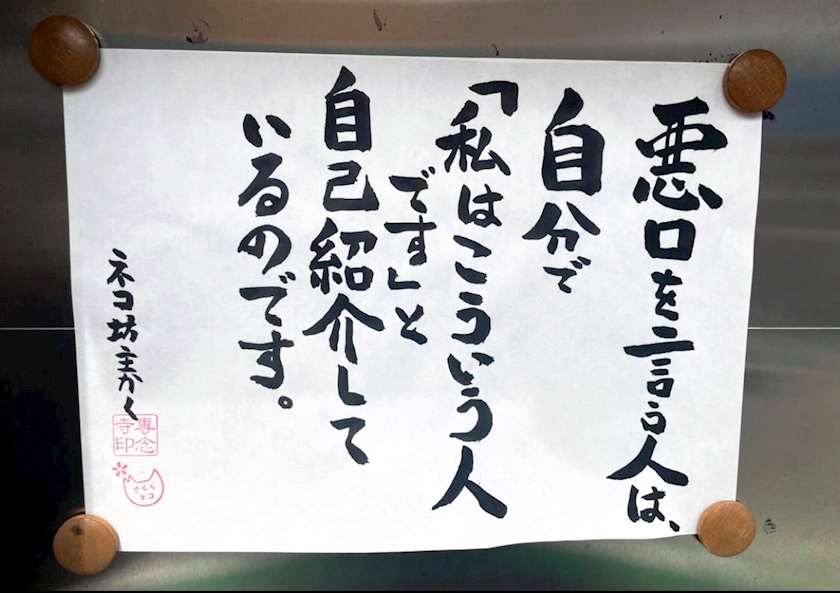 悪口を言う人は、
自分で
「私はこういう人
です」と
自己紹介して
いるのです。
ネコ坊主かく
専念
寺印
さくら
ネコ